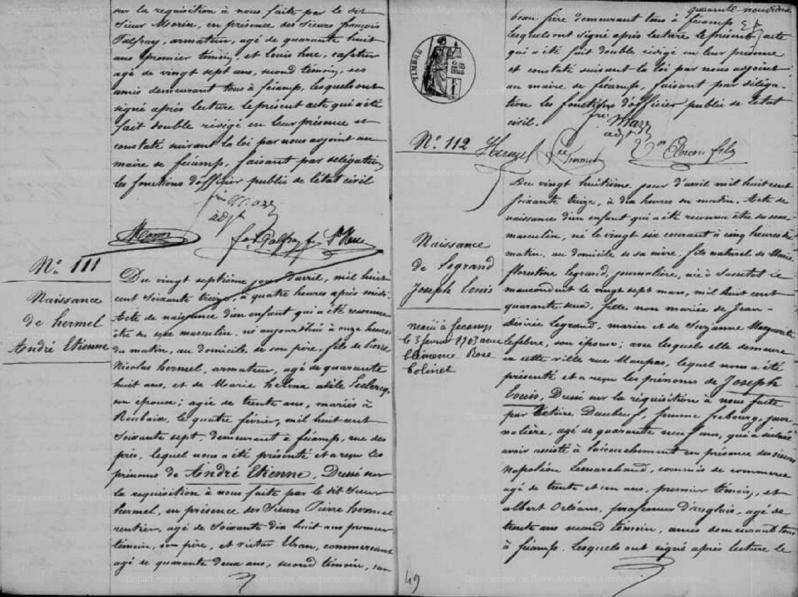 sur la requisition à nous faite par le dit
Sieur Morin, en présence des Sieurs françois
Palfray, armateur, agé de quarante huit
ans premier témoin, et Louis hue, cafetier
agé de vingt sept ans, second témoin, ses
amis demeurant tous à fécamp, lesquels ont
signé après lecture le présent acte qui a été
fait double rédigé en leur présence et
constaté suivant la loi par nous adjoint au
maire de fécamp, faisant par délégation
les fonctions d'officier public de l'état civil
adjt
Morin
N° 111
Naissance
de hermel
André Etienne
Du vingt septième jour d'avril, mil huit
cent soixante treize, à quatre heures après midi.
Acte de naissance d'un enfant qui a été reconnu
être du sexe masculin. né aujourd'hui à onze heures
du matin, au domicile de son père, fils de Pierre
Nicolas hermel, armateur, agé de quarante
huit ans, et de Marie adèle Leclercq,
son épouse; agée de trente ans, mariés à
Roubaix, le quatre février, mil huit cent
soixante sept. demeurant à fécamp, rue des
près, lequel nous a été présenté et a reçu les
prénoms de André Etienne. Dressé sur
la requisition à nous faite par le dit Sieur
hermel, en présence des Sieurs Pierre hermel
rentier, agé de soixante dix huit ans premier
témoin, son père, et victor commerçant
agé de quarante deux ans, second témoin, son
quarante neuvième
beau frère demeurant tous à fécamp
lesquels ont signé après lecture le présent acte
qui a été fait double rédigé en leur présence
et constaté suivant la loi par nous adjoint
au maire de fécamp, faisant par déléga-
tion les fonctions d'officier public de l'état
civil.
adjt
TIMBRE
N° 112
Hermel
Naissance
de Legrand
Joseph Louis
marié à fecamp
le 3 février 1903 avec
Clémence Rose
Du vingt huitième, jour d'avril mil huit cent
soixante treize, à dix heures du matin. Acte de
naissance d'un enfant qui a été reconnu être du sexe
masculin, né le vingt six courant à cinq heures du
matin, au domicile de sa mère. fils naturel de Marie
florentine legrand, journalière, née à
le vingt sept mars, mil huit cent
quarante fille non mariée de Jean
Désirée legrand, marin et de Suzanne Marguerite
Lefebvre, son épouse; avec lesquels elle demeure
en cette ville rue Maupas, lequel nous a été
présenté et a reçu les prénoms de Joseph
Louis. Dressé sur la réquisition à nous faite
par femme jour-
nalière, agée de quarante neuf ans, qui a déclaré
avoir assisté à l'accouchement en présence des sieurs
Napoléon Lemarchand, commis de commerce
agé de trente et un ans. premier témoin, et
albert Orléans, professeur d'anglais. agé de
trente ans second témoin, amis demeurant tous
à fécamp. lesquels ont signé après lecture le
49